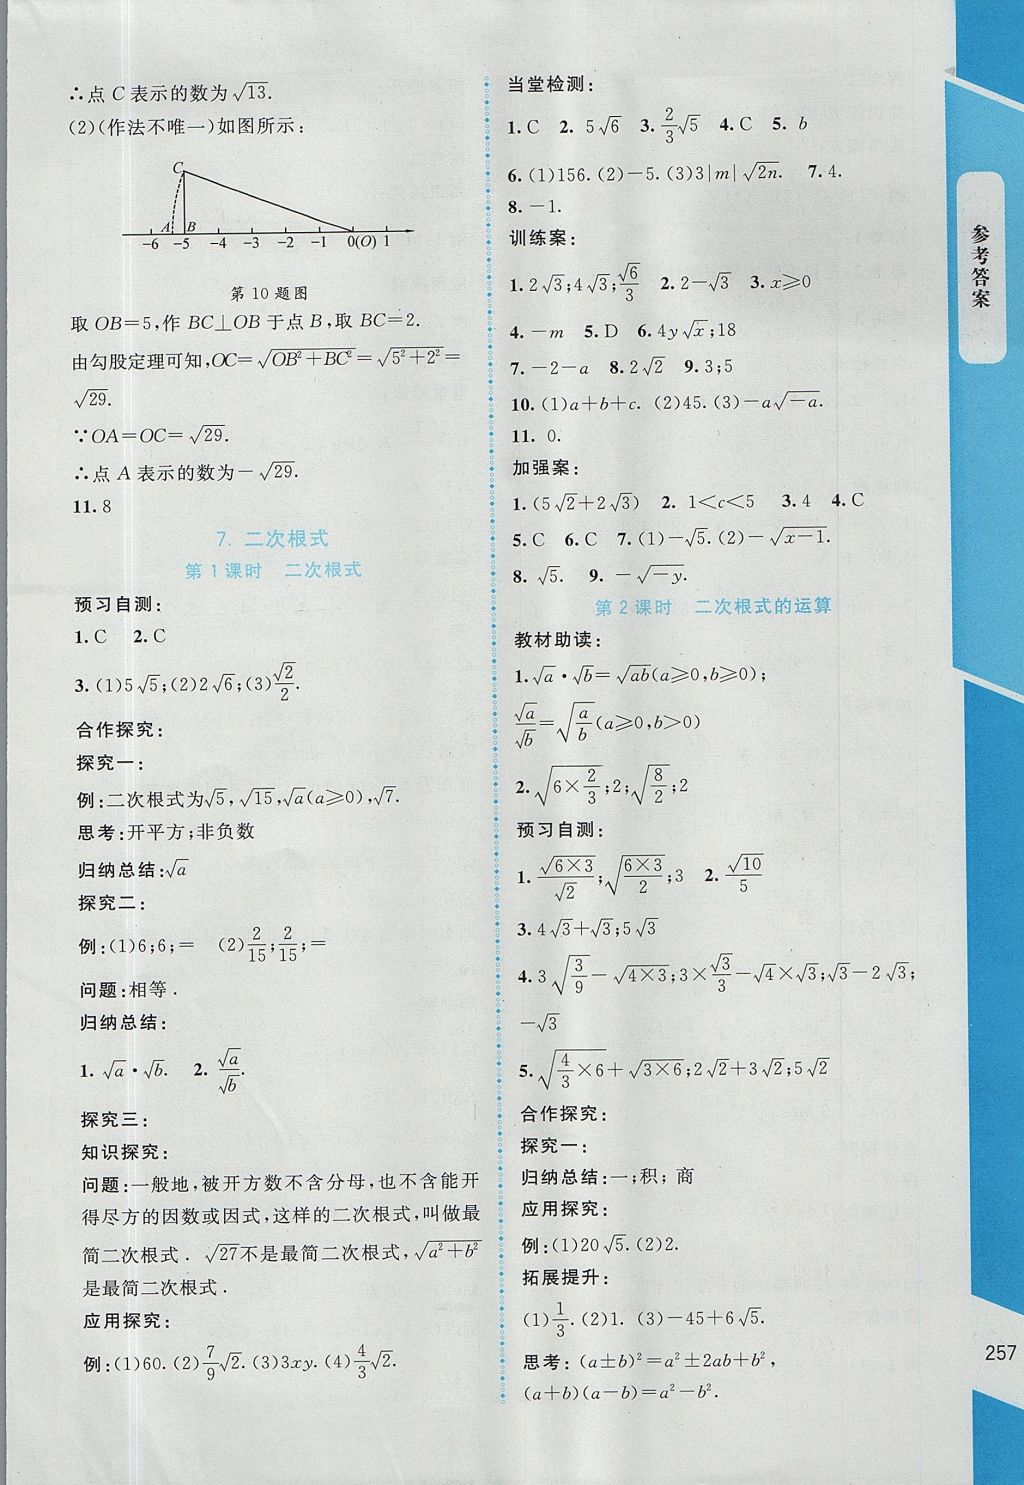 ∴点 C 表示的数为√13.
(2)(作法不唯一)如图所示:
C
A B
-6 -5 -4 -3 -2 -1 0(O) 1
第 10 题图
取 OB=5,作 BC⊥OB 于点 B,取 BC=2.
由勾股定理可知,OC=√(OB²+BC²)=√(5²+2²)=
√29.
∵OA=OC=√29.
∴点 A 表示的数为-√29.
11. 8
7. 二次根式
第 1 课时 二次根式
预习自测:
1. C 2. C
3. (1)5√5;(2)2√6;(3)√2/2.
合作探究:
探究一:
例:二次根式为√5,√15,√a(a≥0),√7.
思考:开平方;非负数
归纳总结:√a
探究二:
例:(1)6;6;= (2)2/15;2/15;=
问题:相等.
归纳总结:
1. √a·√b. 2. √a/√b.
探究三:
知识探究:
问题:一般地,被开方数不含分母,也不含能开
得尽方的因数或因式,这样的二次根式,叫做最
简二次根式. √27不是最简二次根式,√(a²+b²)
是最简二次根式.
应用探究:
例:(1)60. (2)7/9√2. (3)3xy. (4)4/3√2.
当堂检测:
1. C 2. 5√6 3. 2/3√5 4. C 5. b
6. (1)156. (2)-5. (3)3|m|√2n. 7. 4.
8. -1.
训练案:
1. 2√3;4√3;√6/3 2. 2-√3 3. x≥0
4. -m 5. D 6. 4y√x;18
7. -2-a 8. 2√2 9. 3;5
10. (1)a+b+c. (2)45. (3)-a√-a.
11. 0.
加强案:
1. (5√2+2√3) 2. 1<c<5 3. 4 4. C
5. C 6. C 7. (1)-√5. (2)-√(x-1).
8. √5. 9. -√-y.
第 2 课时 二次根式的运算
教材助读:
1. √a·√b=√ab(a≥0,b≥0);
√a/√b=√(a/b)(a≥0,b>0)
2. √(6×2/3);2;√(8/2);2
预习自测:
1. √(6×3)/√2;√((6×3)/2);3 2. √10/5
3. 4√3+√3;5√3
4. 3√(3/9)-√(4×3);3×√3/3-√4×√3;√3-2√3;
-√3
5. √(4/3×6)+√(3×6);2√2+3√2;5√2
合作探究:
探究一:
归纳总结:一;积;商
应用探究:
例:(1)20√5. (2)2.
拓展提升:
(1)1/3. (2)1. (3)-45+6√5.
思考:(a±b)²=a²±2ab+b²,
(a+b)(a-b)=a²-b².
参考答案
257